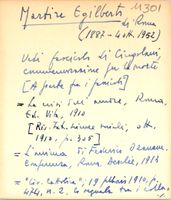 Martire Egilberto 11301
di Roma
(1887 - 4 ott. 1952)
Vedi fascicolo di Cingolani,
commemorazione per la morte
[A parte fra i fascicoli]
= La crisi del amore, Roma,
Ed. Vita, 1910
[Riv. Int. scienze sociali, ott.
1910, p. 305]
= L'anima di Federico Ozanam.
Roma, Desclée, 1913
= "Civ. Cattolica", 19 febbraio 1910, p.
474, n. 2, lo segnala tra i